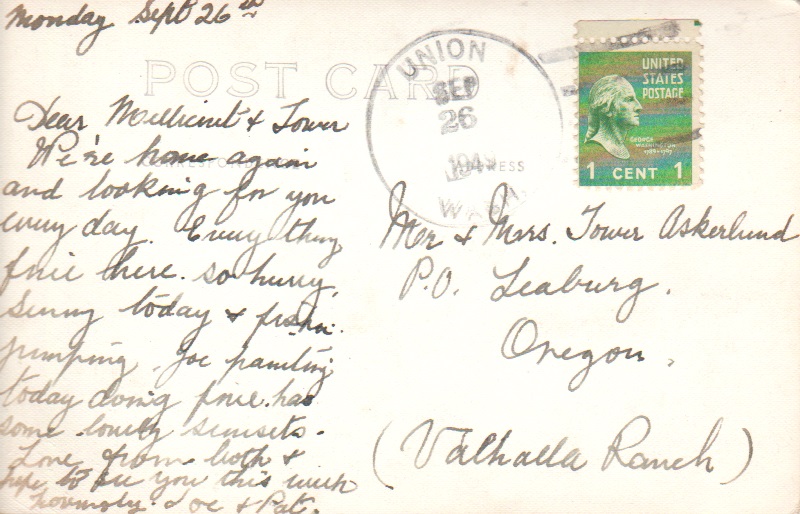 Monday Sept 26th
POST CARD
Dear Millicint & Tower
We're home again
and looking for you
every day. Everything
fine here. so hurry,
Sunny today & fish
jumping. Joe painting
today doing fine. has
some lovely sunsets.
Love from both &
hope to see you this week
Joe & Pat.
UNION
SEP
26
WASH
UNITED
STATES
POSTAGE
GEORGE
WASHINGTON
1 CENT 1
Mr & Mrs. Tower Askerlund
P.O. Leaburg.
Oregon.
(Valhalla Ranch)